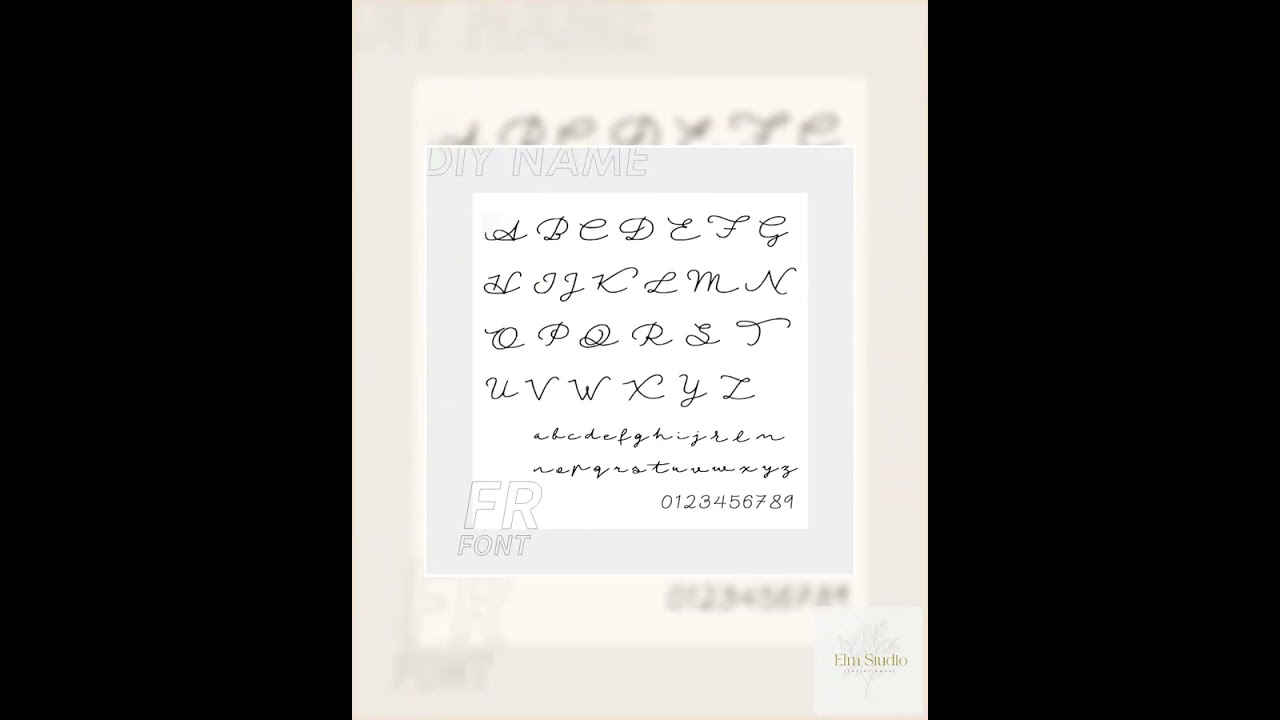 DIY NAME
A B C D E F G
H I J K L M N
O P Q R S T
U V W X Y Z
a b c d e f g h i j k l m
n o p q r s t u v w x y z
0123456789
FR
FONT
Elm Studio